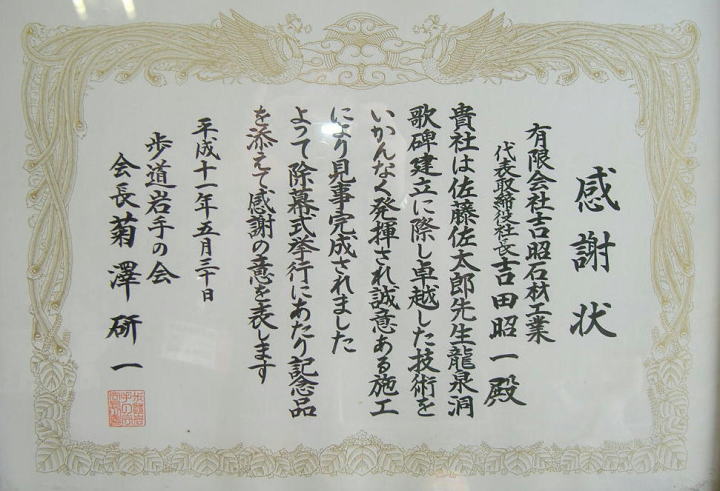 感謝状
有限会社吉昭石材工業
代表取締役社長吉田昭一殿
貴社は佐藤佐太郎先生龍泉洞
歌碑建立に際し卓越した技術を
いかんなく発揮され誠意ある施工
により見事完成されました
よって除幕式挙行にあたり記念品
を添えて感謝の意を表します
平成十一年五月三十日
歩道岩手の会
会長菊澤研一